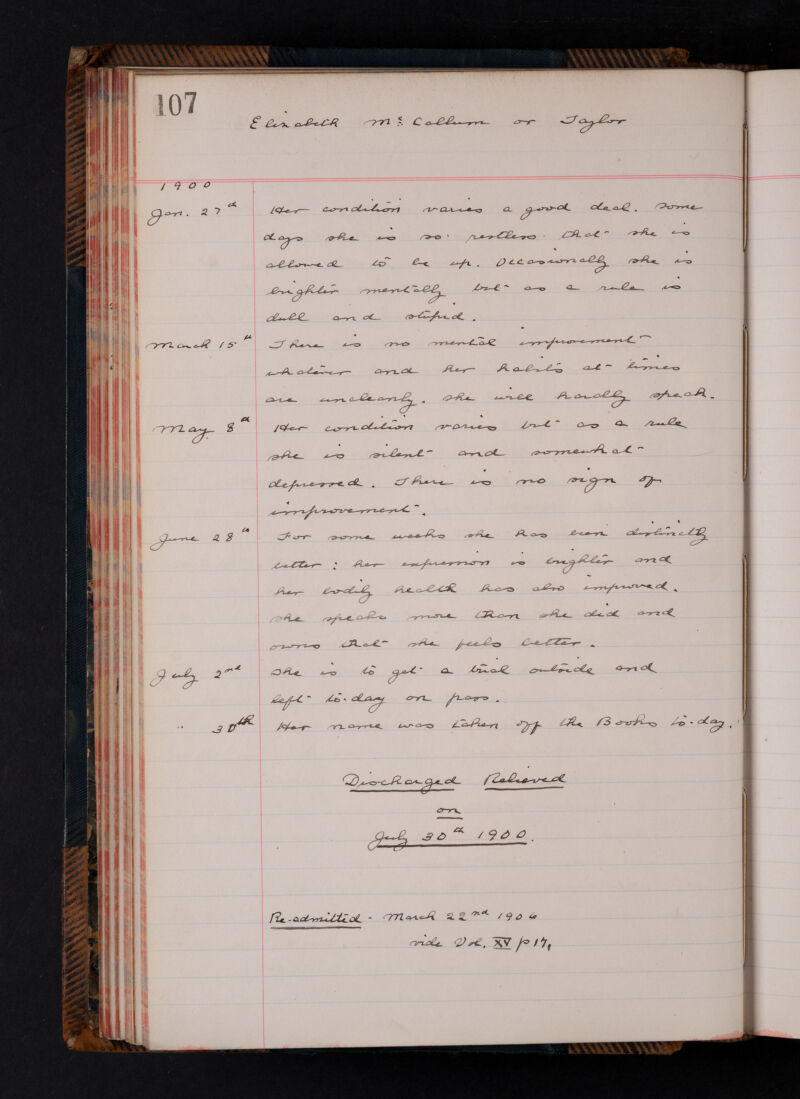 107
Elizabeth Mc Callum or Taylor
1900
Jan. 27th Her condition varies a good deal. Some
days she is so restless that she is
allowed to be up. Occasionally she is
brighter mentally but as a rule is
dull and stupid.
March 15th There is no mental improvement
whatever and her habits at times
are uncleanly. She will hardly speak.
May 8th Her condition varies but as a rule
she is silent and somewhat
depressed. There is no sign of
improvement.
June 28th For some weeks she has been distinctly
better: her expression is brighter and
her bodily health has also improved.
She speaks more than she did and
owns that she feels better.
July 2nd She is to get a trial outside and
left to-day on pass.
" 30th Her name was taken off the Books to-day.
Discharged Relieved
on
July 30th 1900.
Re-admitted - March 22nd 1906
vide Vol. XV p 17,